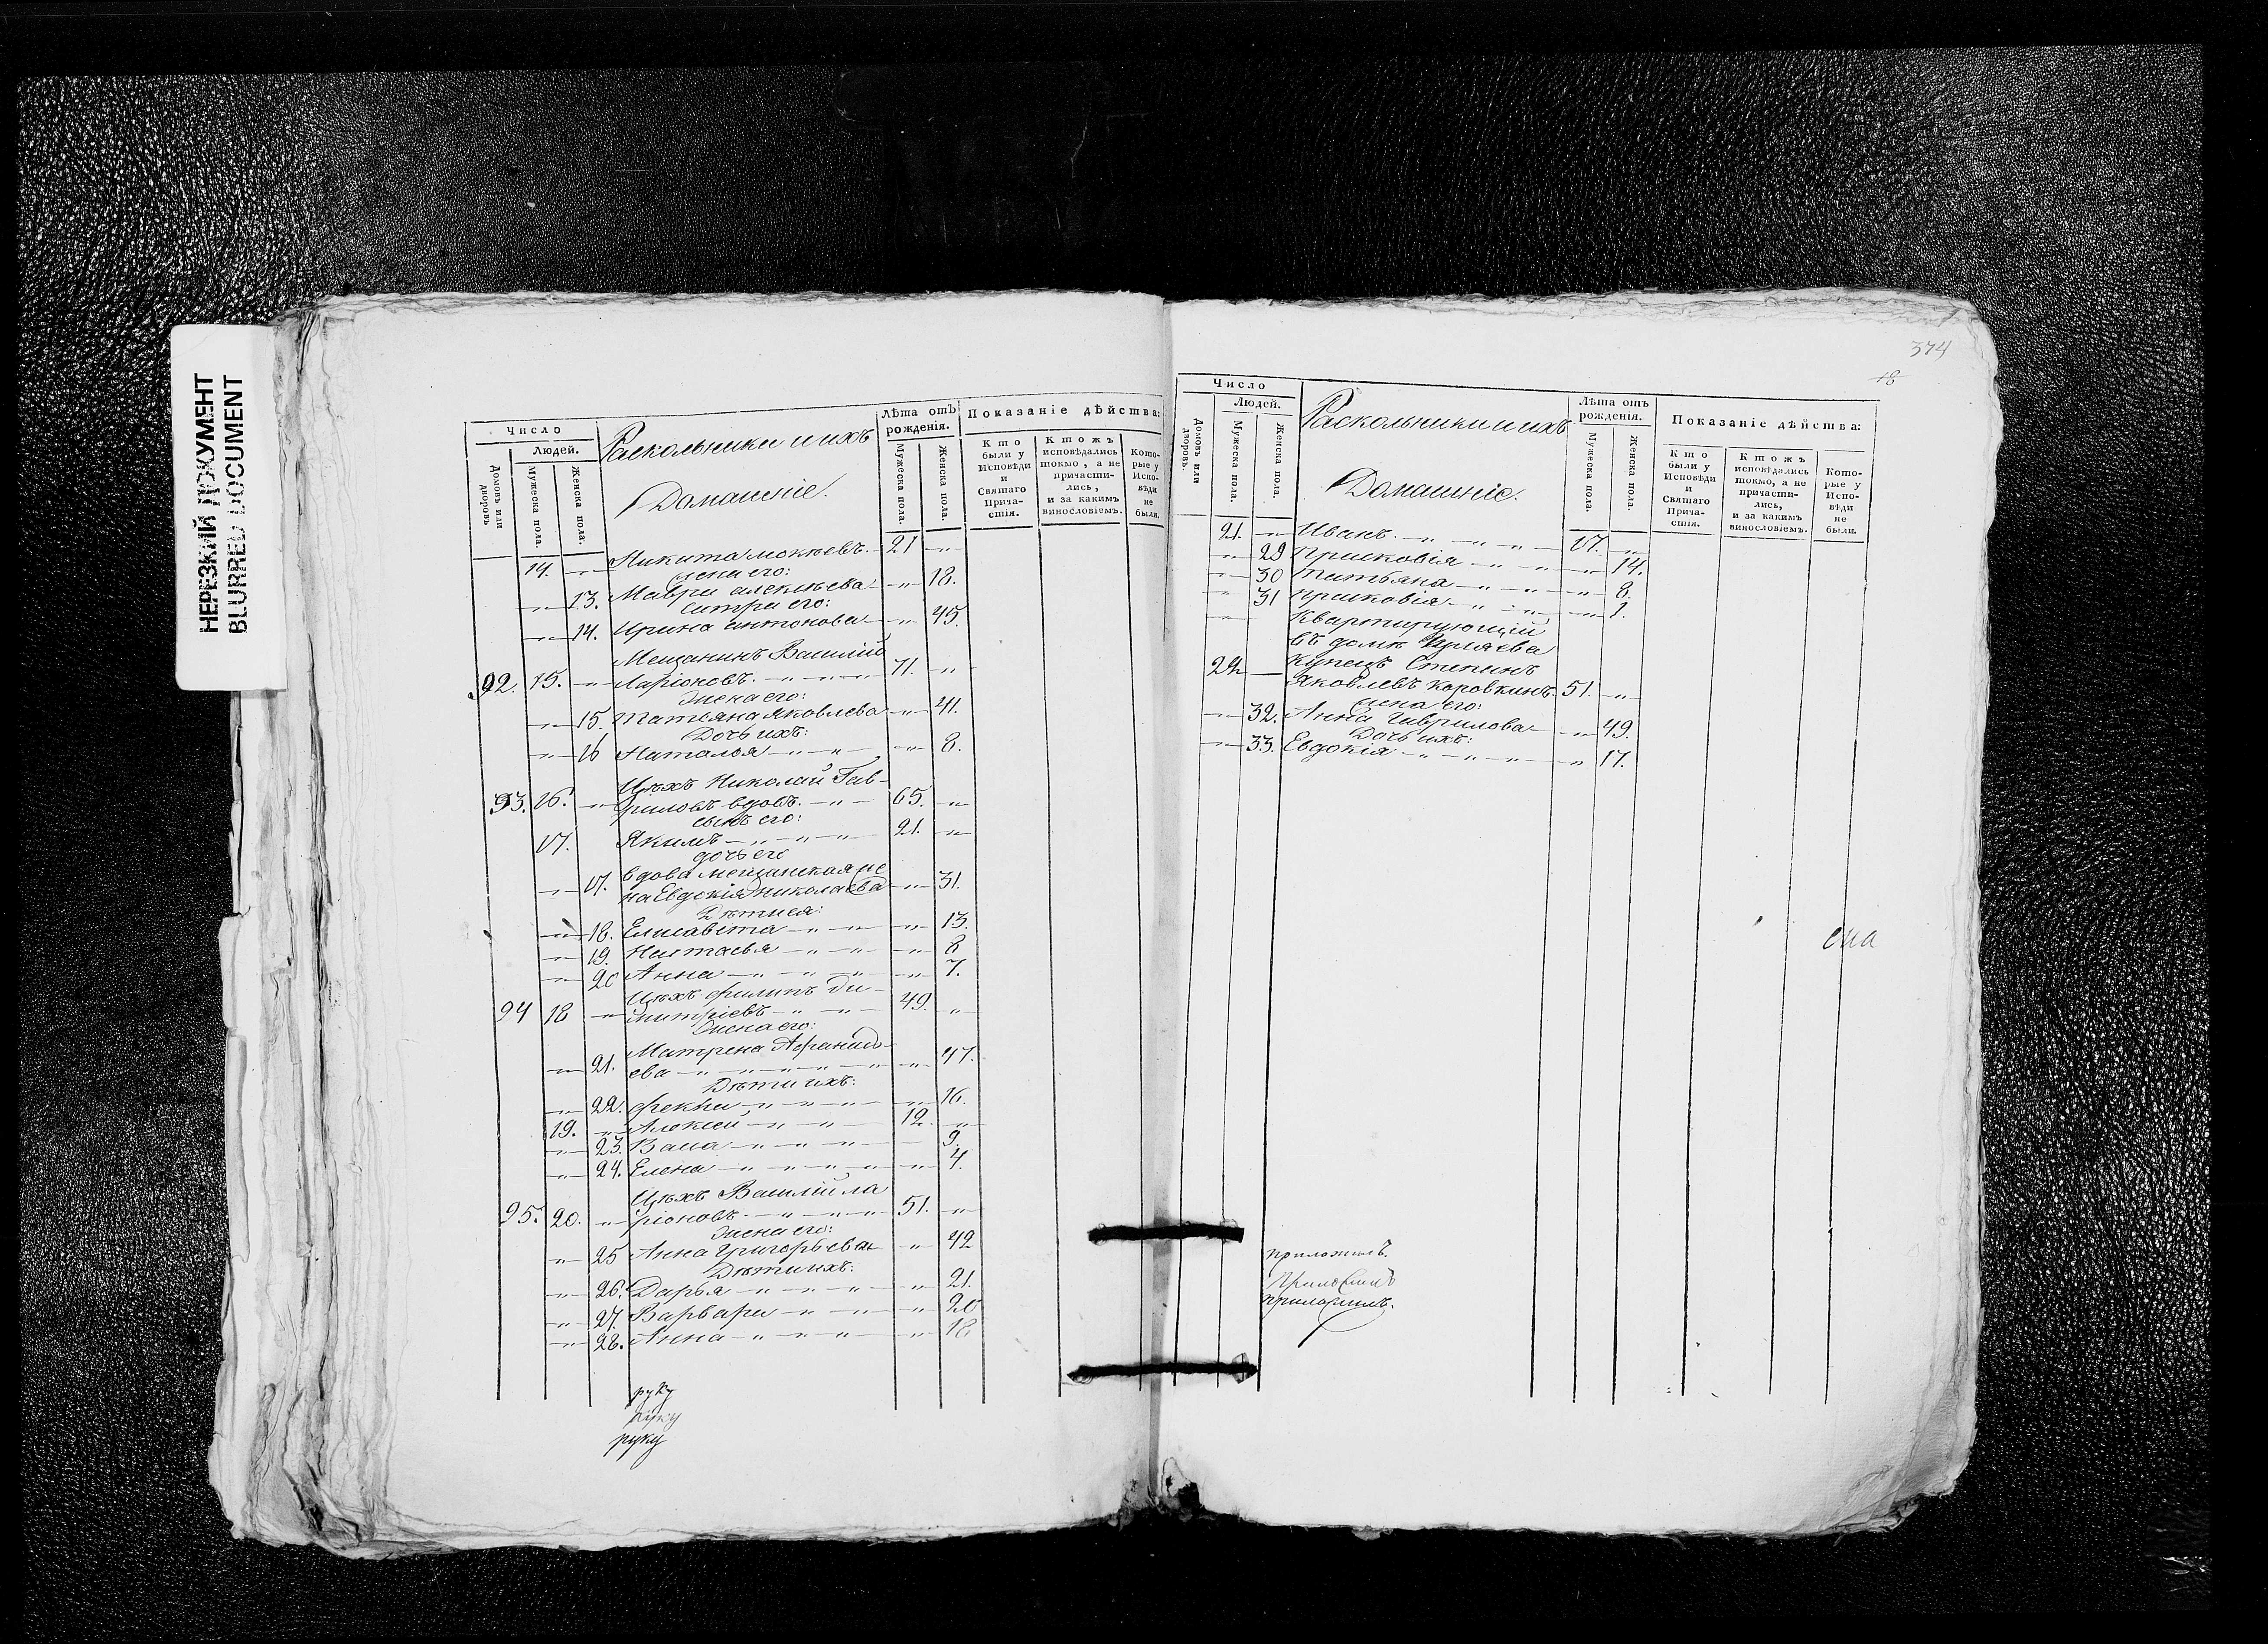 НЕРЕЗКИЙ ДОКУМЕНТ
BLURRED DOCUMENT
Число
Людей.
Домовъ или дворовъ
Мужеска пола.
Женска пола.
Раскольники и ихъ
Домашніе.
Лѣта отъ рожденія.
Мужеска пола.
Женска пола.
Показаніе дѣйства:
Кто были у Исповѣди и Святаго Причастія.
Ктожъ исповѣдались токмо, а не причастились, и за какимъ винословіемъ.
Которые у Исповѣди не были.
14. —"— Никита Мокѣевъ — 21 —"—
жена его:
—"— 13. Мавра Алексѣева —"— 18.
сестра его:
—"— 14. Ирина Антонова —"— 45.
Мещанинъ Василій
92. 15. —"— Ларіоновъ. —"—"—"— 71. —"—
Жена его:
—"— 15. Татьяна Яковлева —"— 41.
Дочь ихъ:
—"— 16 Наталья —"—"— —"— 8.
Цѣхъ Николай Гав-
93. 16. —"— риловъ вдовъ. —"— 65. —"—
сынъ его:
17. Якимъ —"—"—"— 21. —"—
дочь его
вдова мещанская же
—"— 17. на Евдокія Николаева —"— 31.
Дѣти ея:
—"— 18. Елисавета —"—"— —"— 13.
—"— 19. Настасья —"—"— —"— 8
—"— 20 Анна —"—"—"— —"— 7.
Цѣхъ Филипъ Ди-
94 18 —"— митріевъ —"—"— 49. —"—
Жена его:
Матрена Афанась-
—"— 21. ева —"—"—"—"— —"— 47.
Дѣти ихъ:
—"— 22. Фекла —"—"—"— —"— 16.
19. —"— Алексей —"—"— 12. —"—
—"— 23. Васа —"—"—"— — 9.
—"— 24. Елена —"—"—"— —"— 4.
Цѣхъ Василій Ла
95. 20. —"— ріоновъ. —"—"—"— 51. —"—
Жена его:
—"— 25 Анна Григорьева —"— 42
Дѣти ихъ:
—"— 26. Дарья —"—"—"— —"— 21.
—"— 27. Варвара —"—"— —"— 20
—"— 28. Анна —"—"—"— —"— 18
руку
руку
руку
374
18
Число
Людей.
Домовъ или дворовъ.
Мужеска пола.
Женска пола.
Раскольники и ихъ
Домашніе.
Лѣта отъ рожденія.
Мужеска пола.
Женска пола.
Показаніе дѣйства:
Кто были у Исповѣди и Святаго Причастія.
Ктожъ исповѣдались токмо, а не причастились, и за какимъ винословіемъ.
Которые у Исповѣди не были.
21. —"— Иванъ. —"—"—"— 17. —"—
—"— 29 Прасковія —"—"— —"— 14.
—"— 30 Татьяна —"—"—"— —"— 8.
—"— 31 Прасковія —"—"— —"— 1.
Квартирующій
въ домѣ
22 — Купецъ Степанъ
Яковлевъ Коровкинъ 51. —"—
жена его:
—"— 32. Анна Гаврилова —"— 49.
Дочь ихъ:
—"— 33. Евдокія —"—"—"— —"— 17.
приложилъ.
приложилъ
приложилъ.